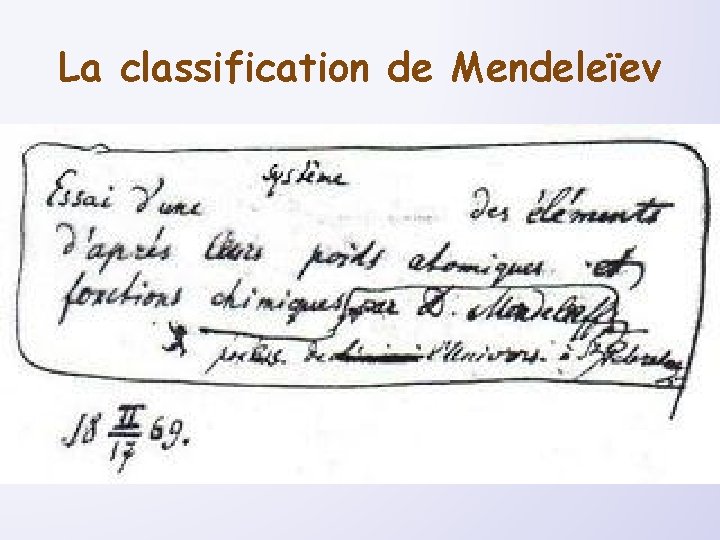 La classification de Mendeleïev
système
Essai d'une des éléments
d'après leurs poids atomiques et
fonctions chimiques par D. Mendeleeff
profess. de l'Univers. à
18 II 69.
17